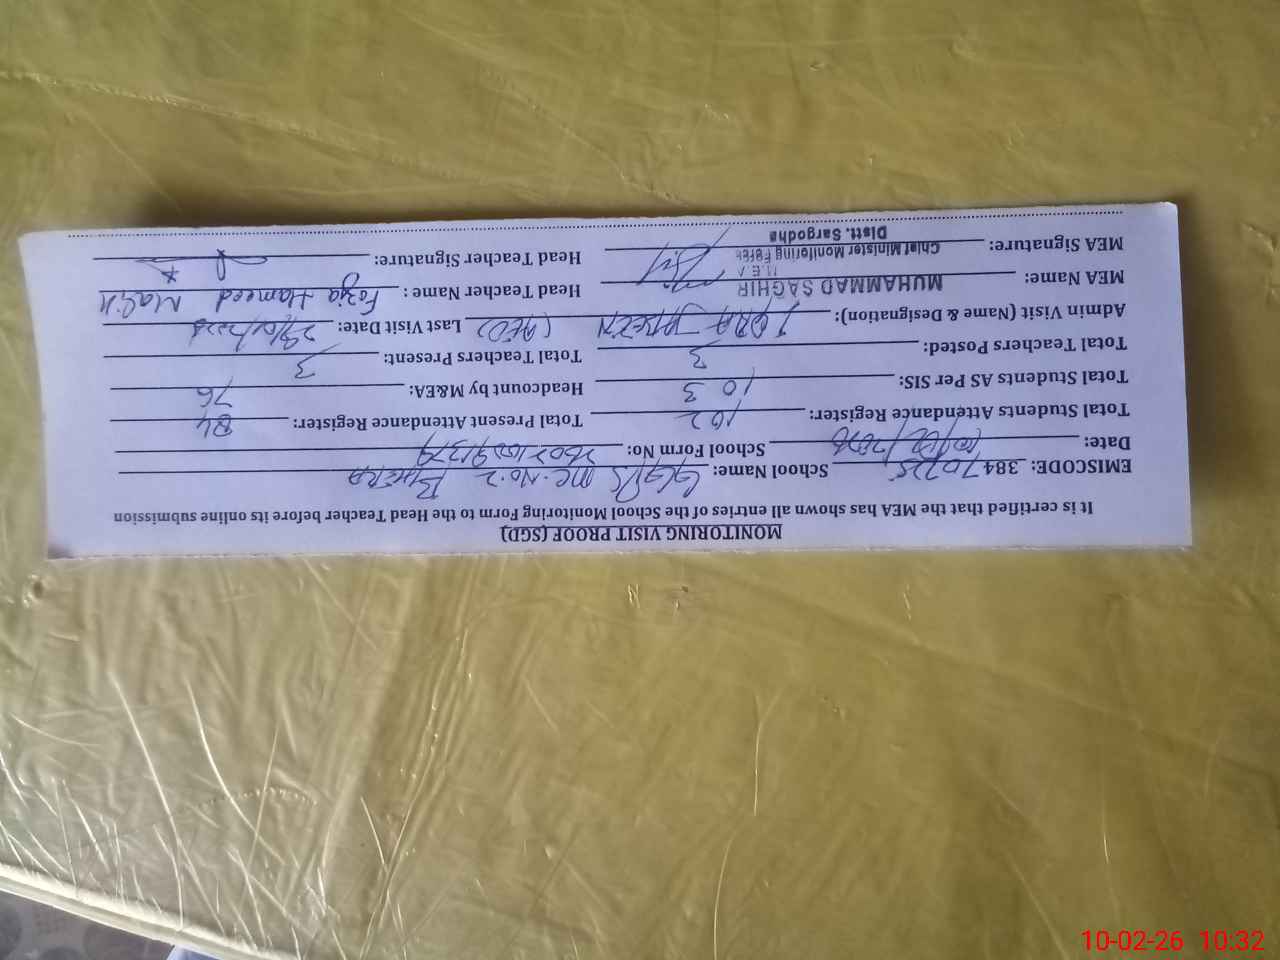 MONITORING VISIT PROOF (SGD)
It is certified that the MEA has shown all entries of the School Monitoring Form to the Head Teacher before its online submission
EMISCODE: 38470225 School Name: GGPS MC. No. 2 BHERA
Date: 10/02/2026 School Form No:
Total Students Attendance Register: 102 Total Present Attendance Register: 84
Total Students AS Per SIS: 103 Headcount by M&EA: 76
Total Teachers Posted: 3 Total Teachers Present: 3
Admin Visit (Name & Designation): IQRA (AEO) Last Visit Date:
MEA Name: MUHAMMAD SAGHIR Head Teacher Name: Fozia Hameed Malik
M.E.A
MEA Signature: Chief Minister Monitoring Force Head Teacher Signature:
Distt. Sargodha
10-02-26 10:32